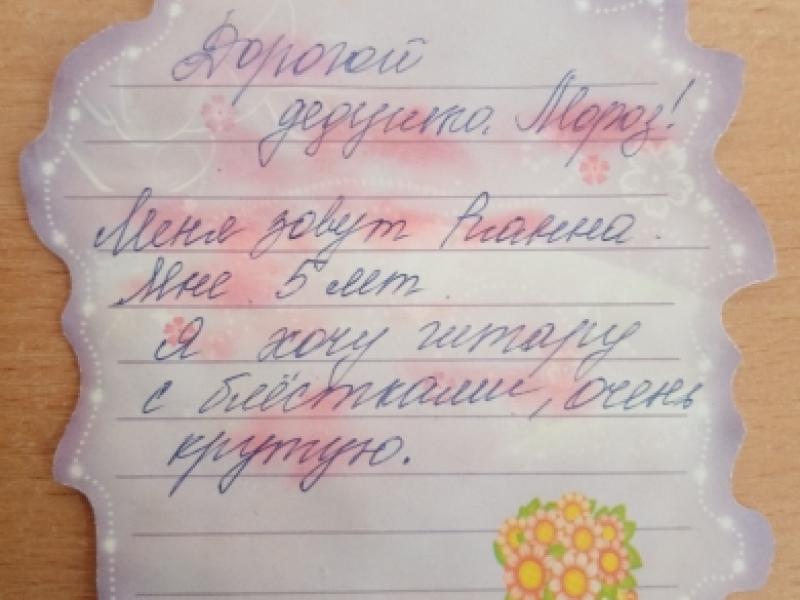 Дорогой
дедушка Мороз!
Меня зовут Рианна.
Мне 5 лет.
Я хочу гитару
с блёстками, очень
крутую.